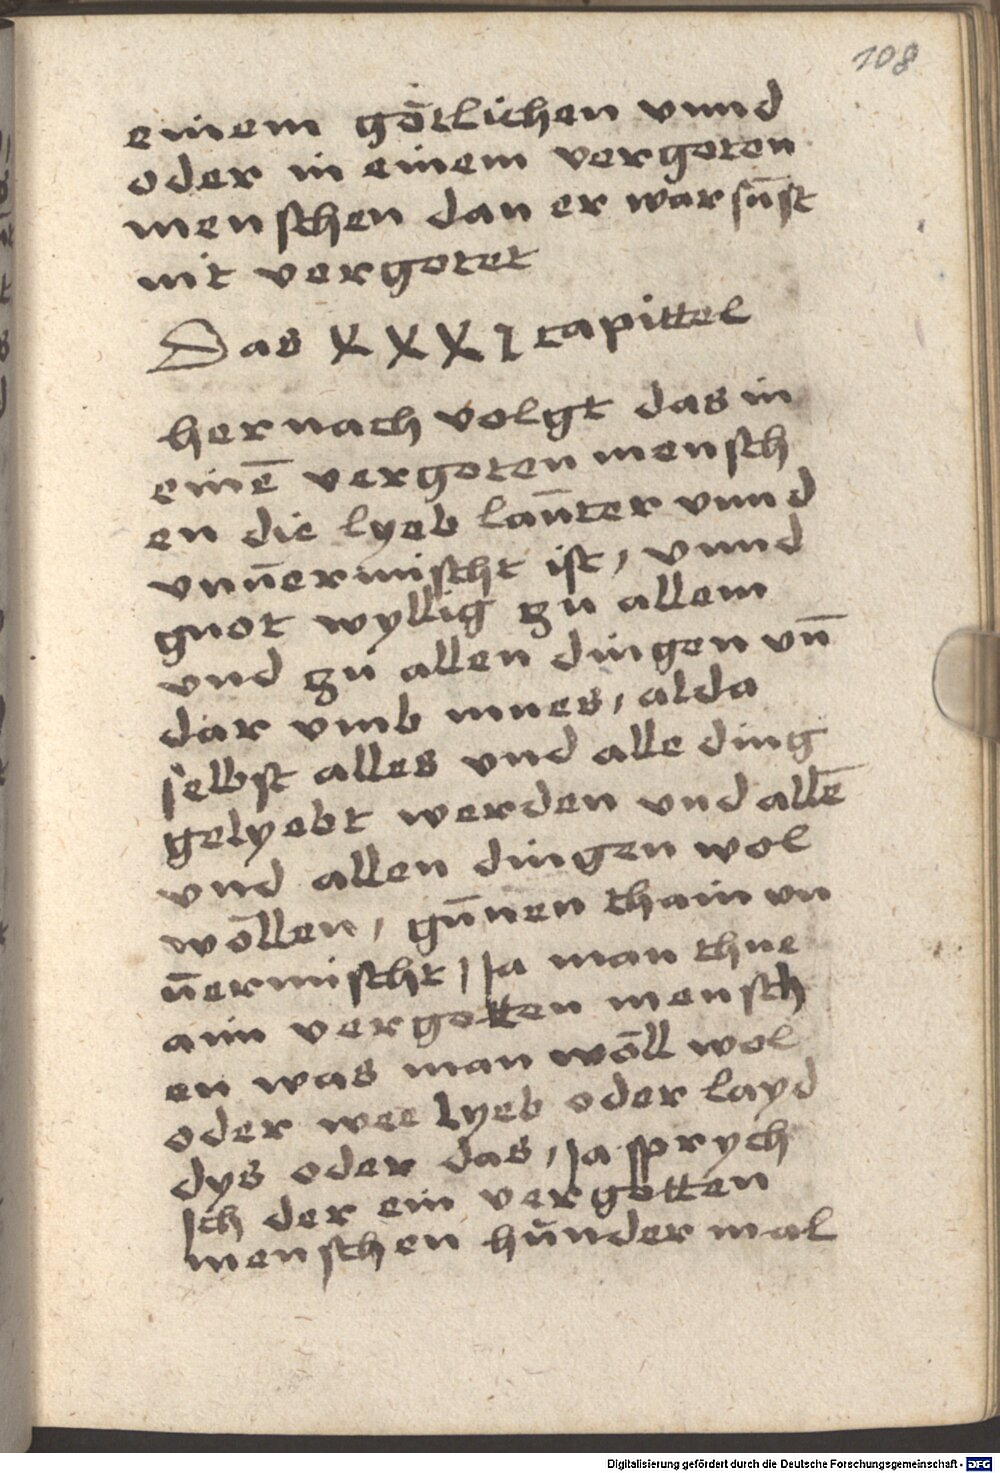 108
einem gōtlichen vnnd
oder in einem vergoten
menschen dan er war sūst
nit vergotet
Das XXXI capittel
hernach volgt das in
einē vergoten mensch
en die lyeb lan̄ter vnnd
vnn̄ermischt ist, vnnd
guot wyllig zu allem
vnd zu allen dingen vn̄
dar vmb mues, alda
selbst alles vnd alle ding
gelyebt werden vnd allē
vnd allen dingen wol
wōllen, gūnnen thain vn
n̄ermischt, Ja man thue
ain vergotten mensch
en was man wōll wol
oder wee lyeb oder layd
dys oder das, Ja sprych
Ich der ein vergotten
menschen hūnder mal
Digitalisierung gefördert durch die Deutsche Forschungsgemeinschaft - DFG